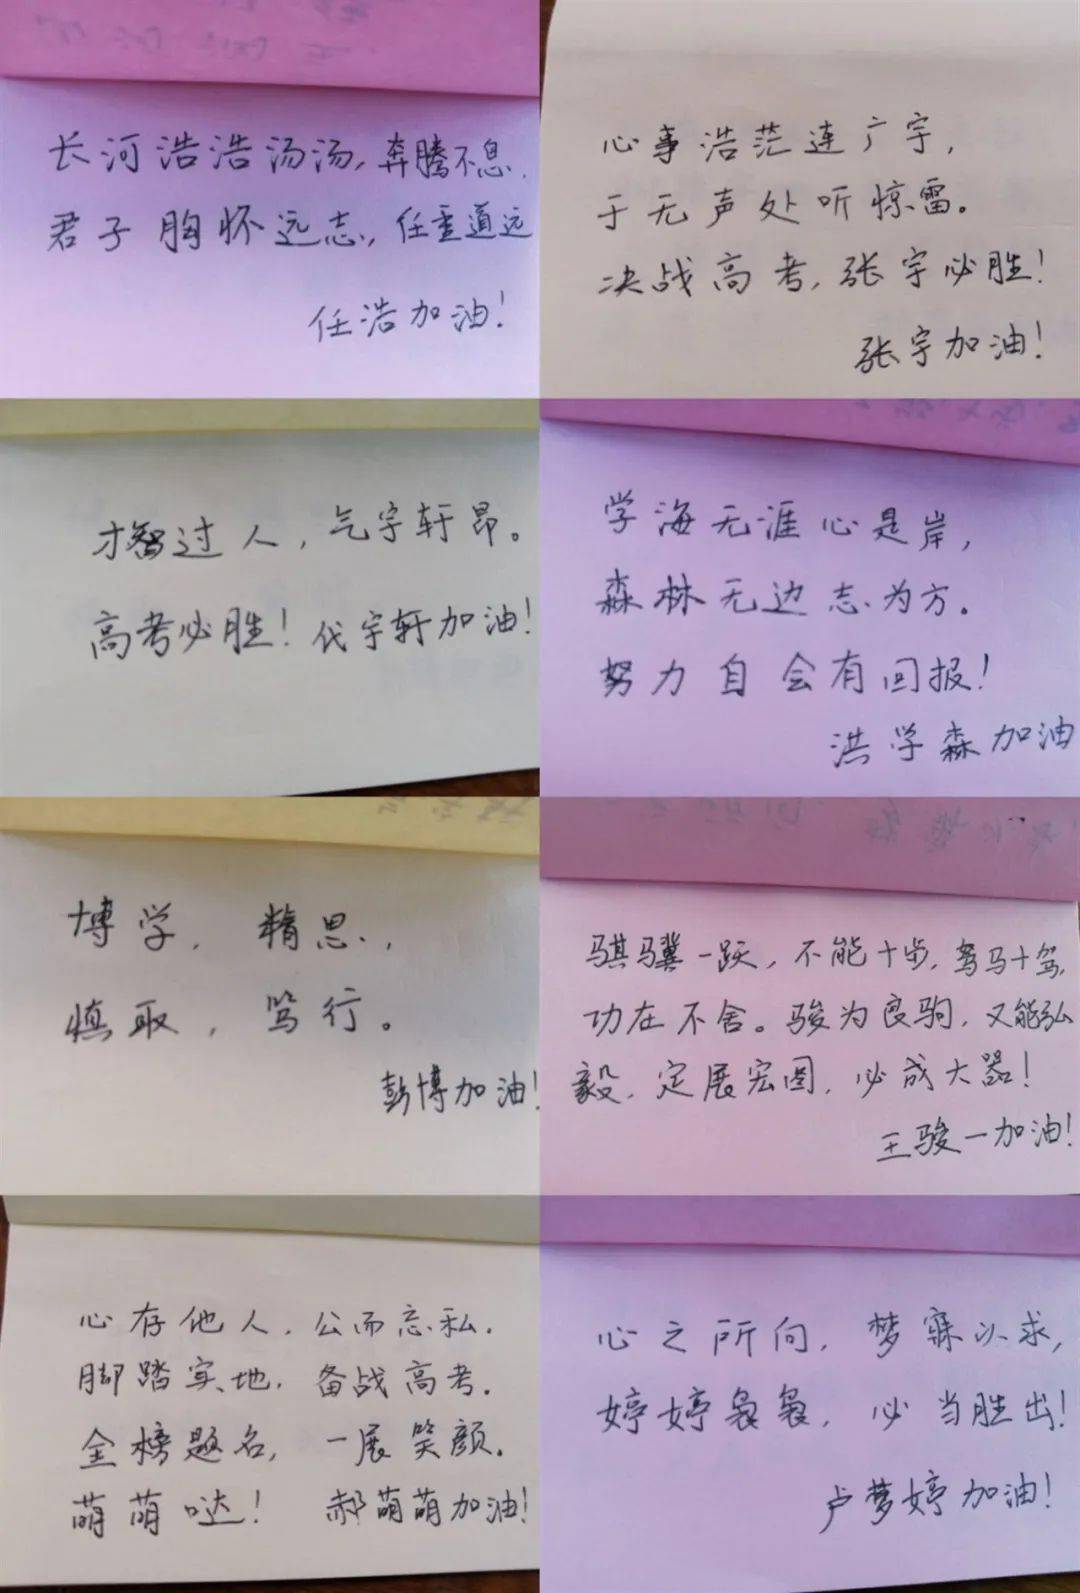 长河浩浩汤汤，奔腾不息，
君子胸怀远志，任重道远
任浩加油！
心事浩茫连广宇，
于无声处听惊雷。
决战高考，张宇必胜！
张宇加油！
才智过人，气宇轩昂。
高考必胜！代宇轩加油！
学海无涯心是岸，
森林无边志为方。
努力自会有回报！
洪学森加油
博学，精思，
慎取，笃行。
彭博加油！
骐骥一跃，不能十步，驽马十驾，
功在不舍。骏为良驹，又能弘
毅，定展宏图，必成大器！
王骏一加油！
心存他人，公而忘私，
脚踏实地，备战高考。
金榜题名，一展笑颜。
萌萌哒！郝萌萌加油！
心之所向，梦寐以求，
婷婷袅袅，必当胜出！
卢梦婷加油！